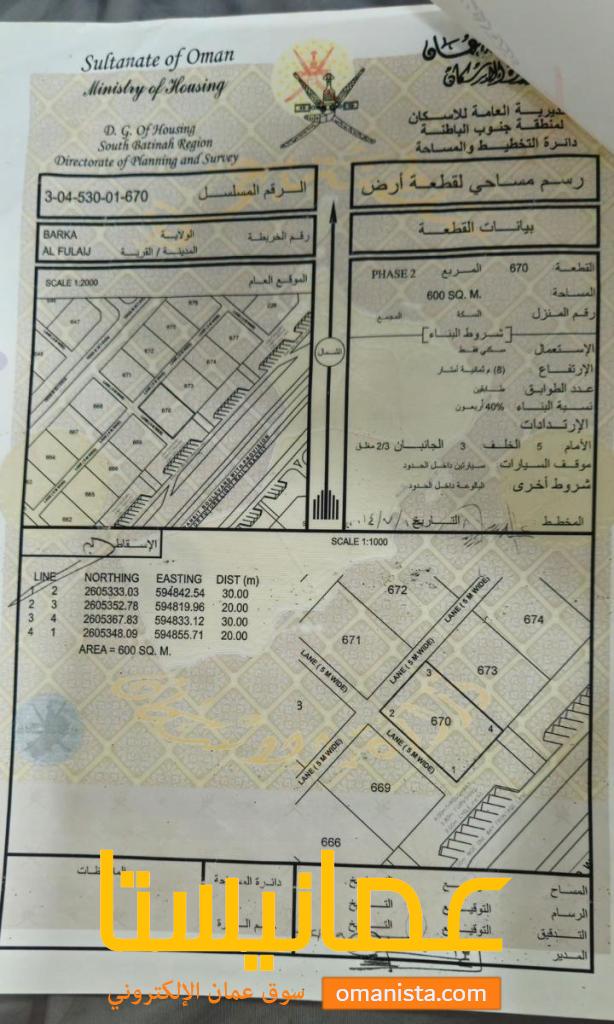 Sultanate of Oman
Ministry of Housing
D. G. Of Housing
South Batinah Region
Directorate of Planning and Survey
المديرية العامة للاسكان
لمنطقة جنوب الباطنة
دائرة التخطيط والمساحة
3-04-530-01-670 الرقم المسلسل
رسم مساحي لقطعة أرض
BARKA الولاية رقم الخريطة
AL FULAIJ المدينة / القرية
بيانات القطعة
SCALE 1:2000 الموقع العام
القطعة: 670 المربع PHASE 2
المساحة: 600 SQ. M.
رقم المنزل السكة المجمع
شروط البناء
الإستعمال سكني فقط
الإرتفاع (8) م ثمانية أمتار
عدد الطوابق طابقين
نسبة البناء 40% أربعون
الإرتدادات
الأمام 5 الخلف 3 الجانبان 2/3 مغلق
موقف السيارات سيارتين داخل الحدود
شروط أخرى البالوعة داخل الحدود
المخطط التاريخ
الشمال
647
676
228
675
677
672
674
671
673
668
670
667
669
664
665
662
الإسقاط
SCALE 1:1000
LINE NORTHING EASTING DIST (m)
1 2 2605333.03 594842.54 30.00
2 3 2605352.78 594819.96 20.00
3 4 2605367.83 594833.12 30.00
4 1 2605348.09 594855.71 20.00
AREA = 600 SQ. M.
672
LANE ( 5 M WIDE)
674
671
LANE ( 5 M WIDE)
673
LANE ( 5 M WIDE)
3
670
2
4
1
LANE ( 5 M WIDE)
LANE ( 5 M WIDE)
669
666
دائرة المساحة
المساح
الرسام التوقيع
التدقيق التوقيع
المدير
عمانيستا
سوق عمان الإلكتروني
omanista.com